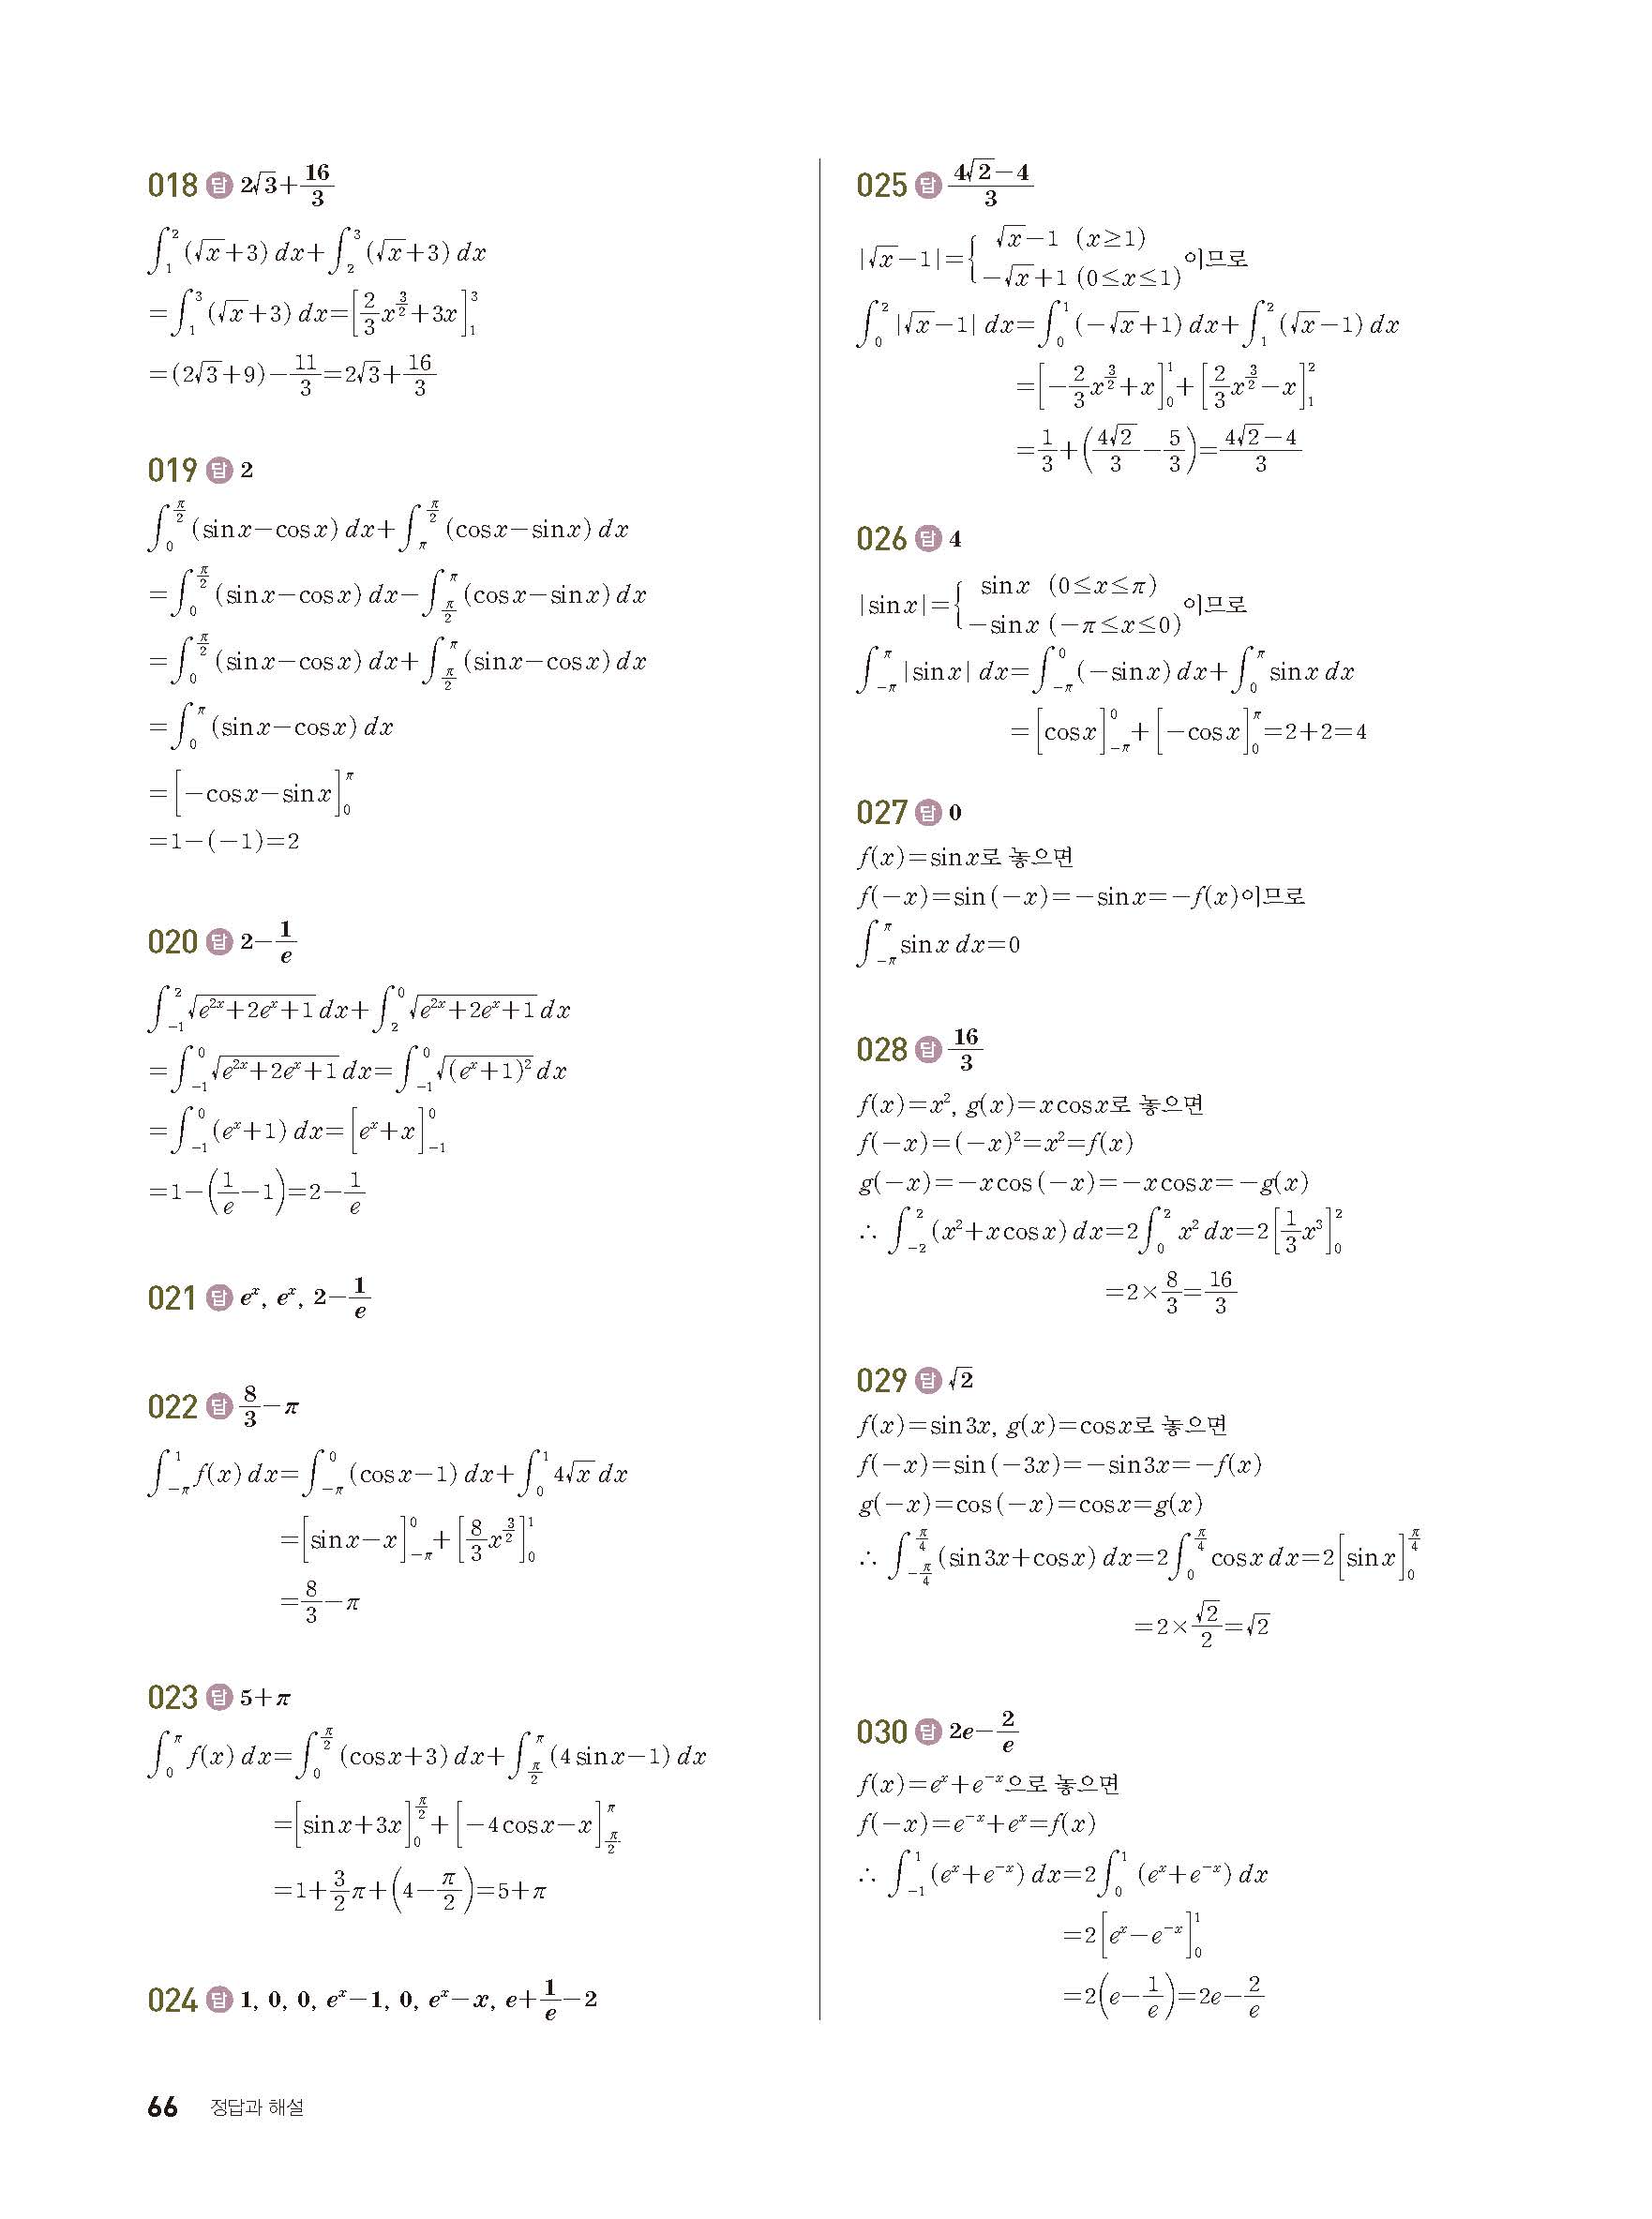 018 답 2√3+16/3
∫_1^2 (√x+3) dx+∫_2^3 (√x+3) dx
=∫_1^3 (√x+3) dx=[2/3 x^(3/2)+3x]_1^3
=(2√3+9)-11/3=2√3+16/3
019 답 2
∫_0^(π/2) (sin x-cos x) dx+∫_π^(π/2) (cos x-sin x) dx
=∫_0^(π/2) (sin x-cos x) dx-∫_(π/2)^π (cos x-sin x) dx
=∫_0^(π/2) (sin x-cos x) dx+∫_(π/2)^π (sin x-cos x) dx
=∫_0^π (sin x-cos x) dx
=[-cos x-sin x]_0^π
=1-(-1)=2
020 답 2-1/e
∫_(-1)^2 √(e^(2x)+2e^x+1) dx+∫_2^0 √(e^(2x)+2e^x+1) dx
=∫_(-1)^0 √(e^(2x)+2e^x+1) dx=∫_(-1)^0 √((e^x+1)^2) dx
=∫_(-1)^0 (e^x+1) dx=[e^x+x]_(-1)^0
=1-(1/e-1)=2-1/e
021 답 e^x, e^x, 2-1/e
022 답 8/3-π
∫_(-π)^1 f(x) dx=∫_(-π)^0 (cos x-1) dx+∫_0^1 4√x dx
=[sin x-x]_(-π)^0+[8/3 x^(3/2)]_0^1
=8/3-π
023 답 5+π
∫_0^π f(x) dx=∫_0^(π/2) (cos x+3) dx+∫_(π/2)^π (4 sin x-1) dx
=[sin x+3x]_0^(π/2)+[-4 cos x-x]_(π/2)^π
=1+3/2 π+(4-π/2)=5+π
024 답 1, 0, 0, e^x-1, 0, e^x-x, e+1/e-2
025 답 (4√2-4)/3
|√x-1|={ √x-1 (x≥1)
-√x+1 (0≤x≤1) 이므로
∫_0^2 |√x-1| dx=∫_0^1 (-√x+1) dx+∫_1^2 (√x-1) dx
=[-2/3 x^(3/2)+x]_0^1+[2/3 x^(3/2)-x]_1^2
=1/3+(4√2/3-5/3)=(4√2-4)/3
026 답 4
|sin x|={ sin x (0≤x≤π)
-sin x (-π≤x≤0) 이므로
∫_(-π)^π |sin x| dx=∫_(-π)^0 (-sin x) dx+∫_0^π sin x dx
=[cos x]_(-π)^0+[-cos x]_0^π=2+2=4
027 답 0
f(x)=sin x로 놓으면
f(-x)=sin (-x)=-sin x=-f(x)이므로
∫_(-π)^π sin x dx=0
028 답 16/3
f(x)=x^2, g(x)=x cos x로 놓으면
f(-x)=(-x)^2=x^2=f(x)
g(-x)=-x cos (-x)=-x cos x=-g(x)
∴ ∫_(-2)^2 (x^2+x cos x) dx=2∫_0^2 x^2 dx=2[1/3 x^3]_0^2
=2×8/3=16/3
029 답 √2
f(x)=sin 3x, g(x)=cos x로 놓으면
f(-x)=sin (-3x)=-sin 3x=-f(x)
g(-x)=cos (-x)=cos x=g(x)
∴ ∫_(-π/4)^(π/4) (sin 3x+cos x) dx=2∫_0^(π/4) cos x dx=2[sin x]_0^(π/4)
=2×√2/2=√2
030 답 2e-2/e
f(x)=e^x+e^(-x)으로 놓으면
f(-x)=e^(-x)+e^x=f(x)
∴ ∫_(-1)^1 (e^x+e^(-x)) dx=2∫_0^1 (e^x+e^(-x)) dx
=2[e^x-e^(-x)]_0^1
=2(e-1/e)=2e-2/e
66 정답과 해설